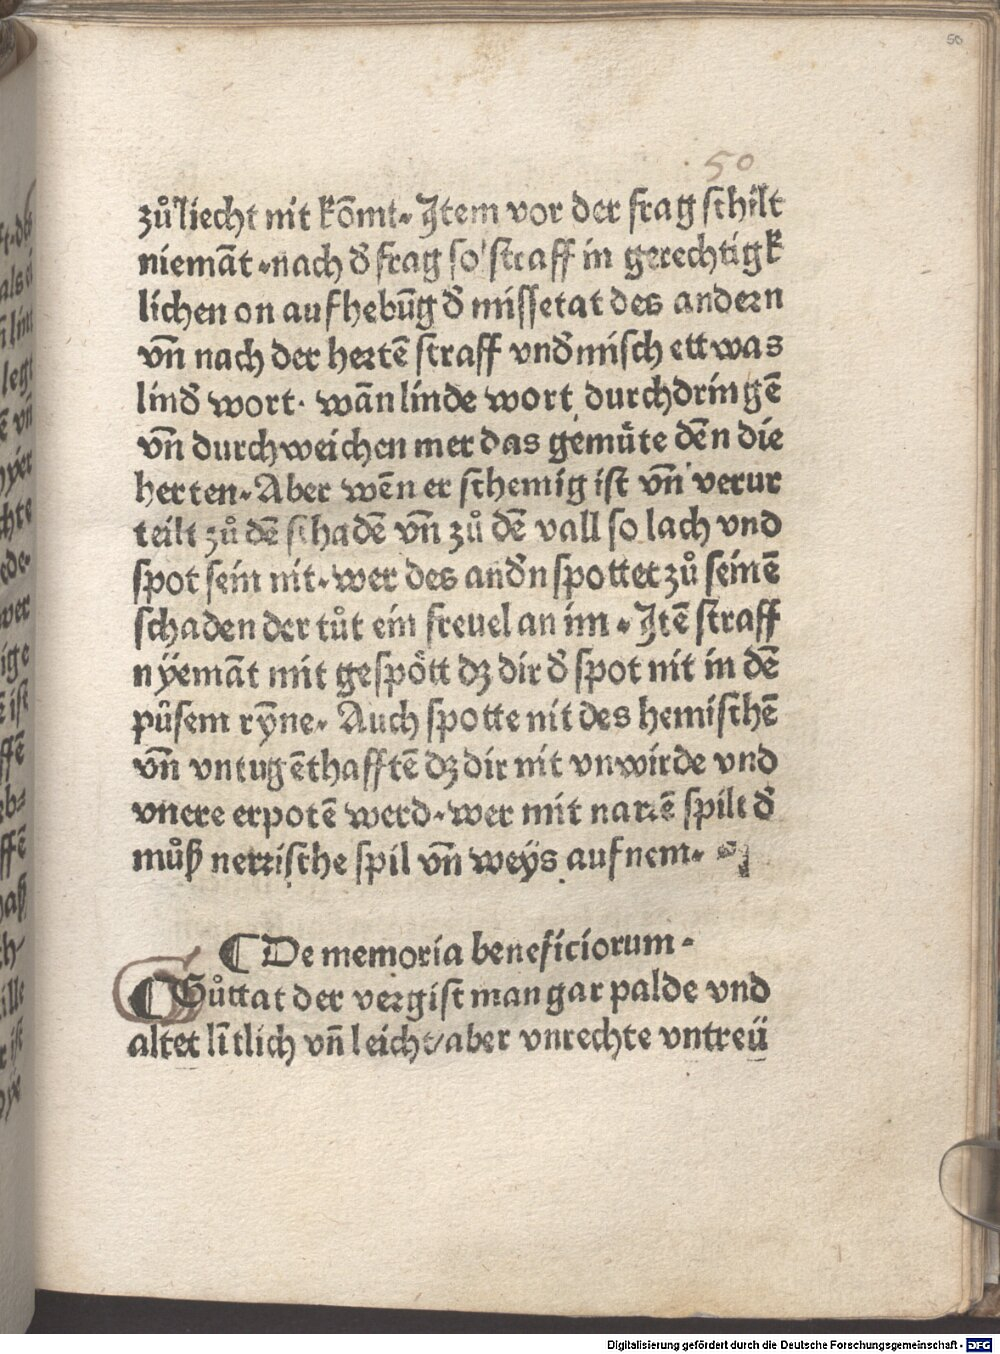 50
50
zů liecht nit kōmt. Jtem vor der frag schilt
niemāt. nach d̄ frag so straff in gerechtigk
lichen on aufhebūg d̄ missetat des andern
vn̄ nach der hertē straff vnd̄misch ettwas
lind̄ wort. wān linde wort durchdringē
vn̄ durchweichen mer das gemüte dēn die
herten. Aber wēn er schemig ist vn̄ verur
teilt zů dē schadē vn̄ zů dē vall so lach vnd
spot sein nit. wer des and̄n spottet zů seinē
schaden der tůt ein freuel an im. Jtē straff
nÿemāt mit gespött dz dir d̄ spot nit in dē
půsem rȳne. Auch spotte nit des hemischē
vn̄ vntugēthafftē dz dir nit vnwirde vnd
vnere erpotē werd. wer mit narrē spilt d̄
můß nerrische spil vn̄ weÿs aufnem.
¶ De memoria beneficiorum.
¶ Gůttat der vergist man gar palde vnd
altet lītlich vn̄ leicht/aber vnrechte vntreü
Digitalisierung gefördert durch die Deutsche Forschungsgemeinschaft - DFG